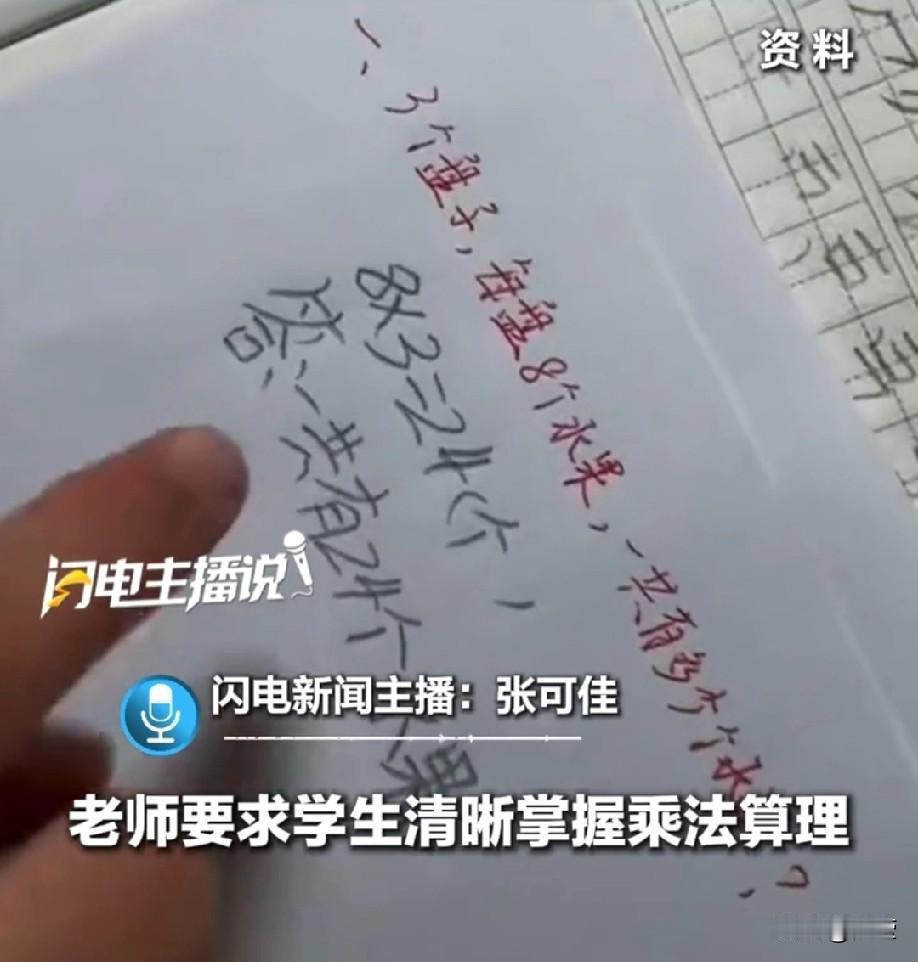 资料
一、3个盘子，每盘8个水果，一共有多少个水？
8×3=24(个)
答：一共有24个果
闪电主播说
闪电新闻主播：张可佳
老师要求学生清晰掌握乘法算理